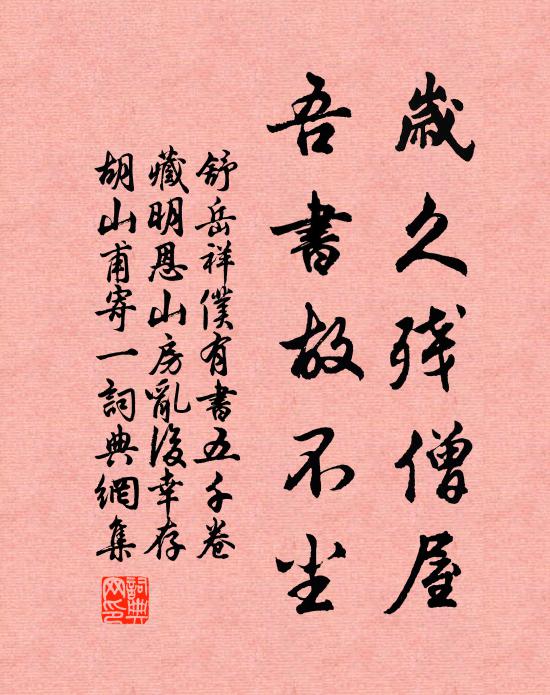 歲久殘僧屋
吾書故不尘
舒岳祥僕有書五千卷
藏明恩山房亂後幸存
胡山甫寄一詞典網集
詞典
网印